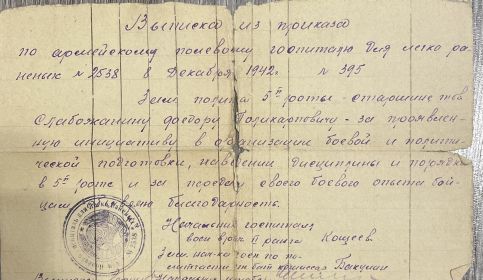 Выписка из приказа
по армейскому полевому госпиталю для легко ра-
неных № 2538 8 Декабря 1942г. № 395
Зам. полита 5й роты - старшине тов
Слабожанину Федору Поликарповичу - за проявлен-
ную инициативу в организации боевой и полити-
ческой подготовки, наведении дисциплины и порядка
в 5й роте и за передачу своего боевого опыта бой-
цам благодарность.
Начальник госпиталя
воен врач II ранга Кощеев.
Зам. нач-ка гос по по-
литчасти ст. бат комиссар